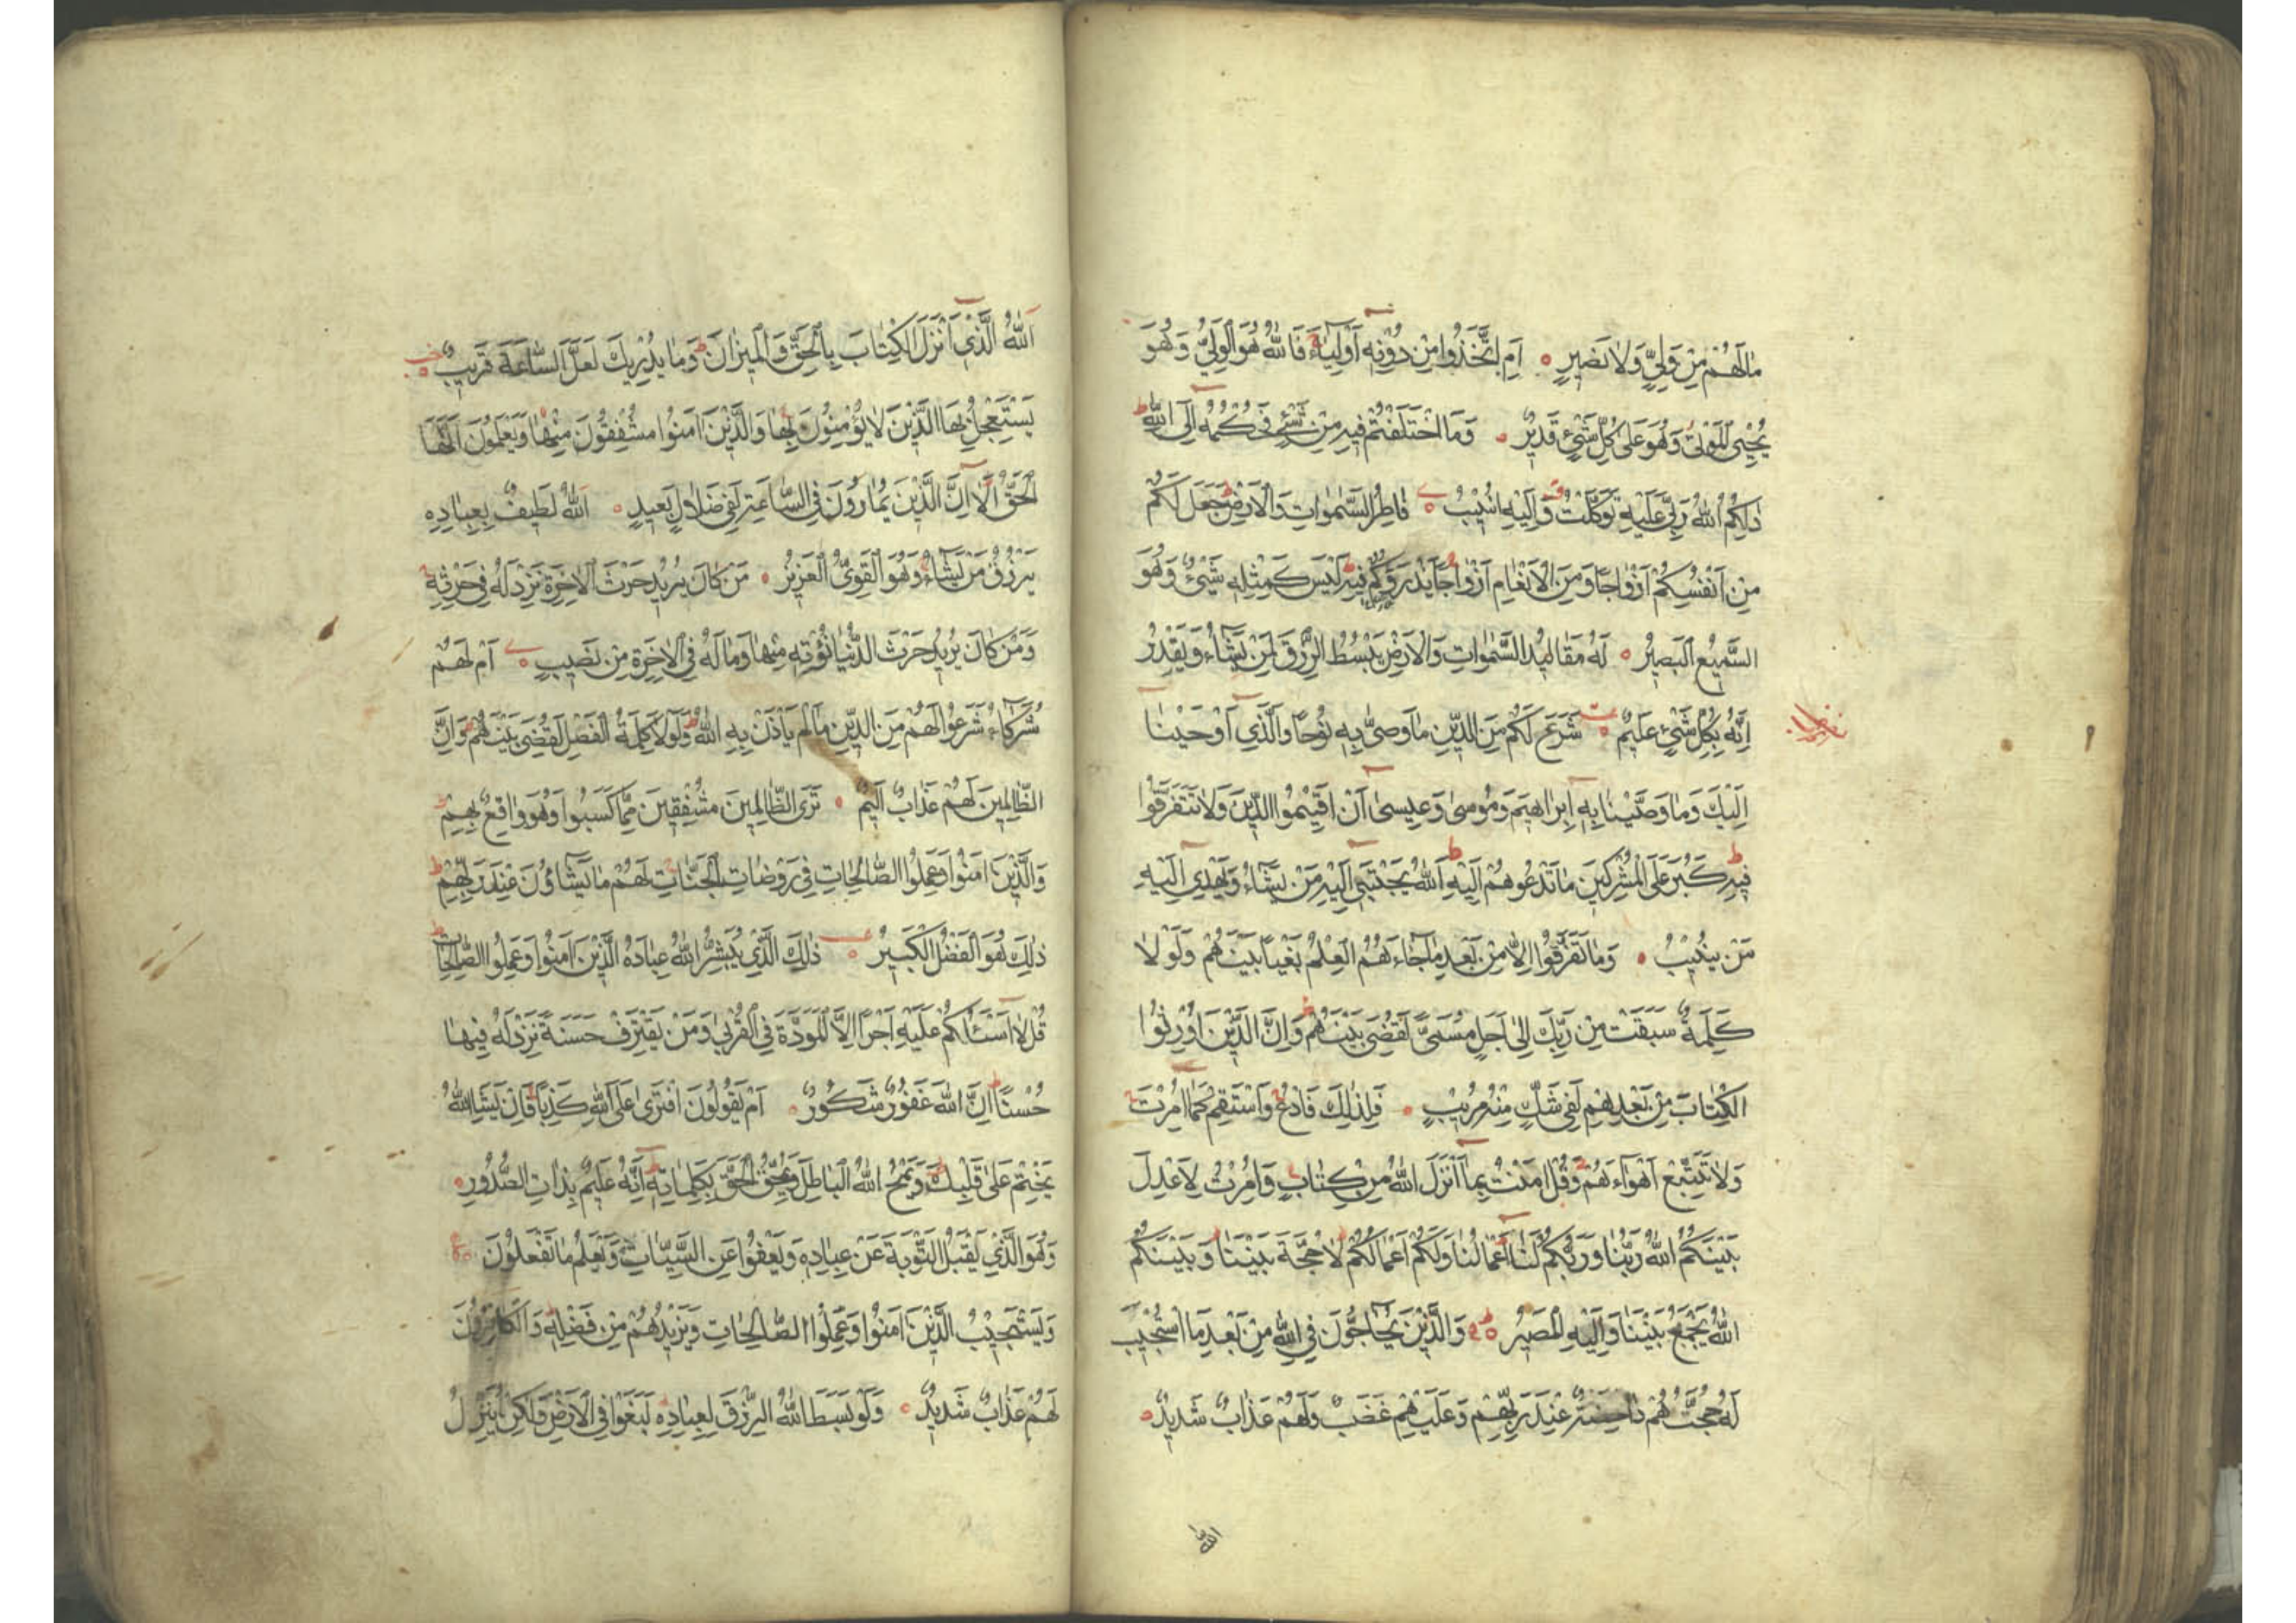 مَا لَهُمْ مِنْ وَلِيٍّ وَلَا نَصِيرٍ ○ اَمِ اتَّخَذُوا مِنْ دُونِهِ اَوْلِيَاءَ فَاللهُ هُوَ الْوَلِيُّ وَهُوَ
يُحْيِي الْمَوْتَى وَهُوَ عَلَى كُلِّ شَيْءٍ قَدِيرٌ ○ وَمَا اخْتَلَفْتُمْ فِيهِ مِنْ شَيْءٍ فَحُكْمُهُ اِلَى اللهِ
ذٰلِكُمُ اللهُ رَبِّي عَلَيْهِ تَوَكَّلْتُ وَاِلَيْهِ اُنِيبُ ○ فَاطِرُ السَّمٰوَاتِ وَالْاَرْضِ جَعَلَ لَكُمْ
مِنْ اَنْفُسِكُمْ اَزْوَاجًا وَمِنَ الْاَنْعَامِ اَزْوَاجًا يَذْرَؤُكُمْ فِيهِ لَيْسَ كَمِثْلِهِ شَيْءٌ وَهُوَ
السَّمِيعُ الْبَصِيرُ ○ لَهُ مَقَالِيدُ السَّمٰوَاتِ وَالْاَرْضِ يَبْسُطُ الرِّزْقَ لِمَنْ يَشَاءُ وَيَقْدِرُ
اِنَّهُ بِكُلِّ شَيْءٍ عَلِيمٌ ○ شَرَعَ لَكُمْ مِنَ الدِّينِ مَا وَصَّى بِهِ نُوحًا وَالَّذِي اَوْحَيْنَا
اِلَيْكَ وَمَا وَصَّيْنَا بِهِ اِبْرَاهِيمَ وَمُوسٰى وَعِيسٰى اَنْ اَقِيمُوا الدِّينَ وَلَا تَتَفَرَّقُوا
فِيهِ كَبُرَ عَلَى الْمُشْرِكِينَ مَا تَدْعُوهُمْ اِلَيْهِ اَللهُ يَجْتَبِي اِلَيْهِ مَنْ يَشَاءُ وَيَهْدِي اِلَيْهِ
مَنْ يُنِيبُ ○ وَمَا تَفَرَّقُوا اِلَّا مِنْ بَعْدِ مَا جَاءَهُمُ الْعِلْمُ بَغْيًا بَيْنَهُمْ وَلَوْلَا
كَلِمَةٌ سَبَقَتْ مِنْ رَبِّكَ اِلٰى اَجَلٍ مُسَمًّى لَقُضِيَ بَيْنَهُمْ وَاِنَّ الَّذِينَ اُورِثُوا
الْكِتَابَ مِنْ بَعْدِهِمْ لَفِي شَكٍّ مِنْهُ مُرِيبٍ ○ فَلِذٰلِكَ فَادْعُ وَاسْتَقِمْ كَمَا اُمِرْتَ
وَلَا تَتَّبِعْ اَهْوَاءَهُمْ وَقُلْ اٰمَنْتُ بِمَا اَنْزَلَ اللهُ مِنْ كِتَابٍ وَاُمِرْتُ لِاَعْدِلَ
بَيْنَكُمُ اللهُ رَبُّنَا وَرَبُّكُمْ لَنَا اَعْمَالُنَا وَلَكُمْ اَعْمَالُكُمْ لَا حُجَّةَ بَيْنَنَا وَبَيْنَكُمُ
اللهُ يَجْمَعُ بَيْنَنَا وَاِلَيْهِ الْمَصِيرُ ○ وَالَّذِينَ يُحَاجُّونَ فِي اللهِ مِنْ بَعْدِ مَا اسْتُجِيبَ
لَهُ حُجَّتُهُمْ دَاحِضَةٌ عِنْدَ رَبِّهِمْ وَعَلَيْهِمْ غَضَبٌ وَلَهُمْ عَذَابٌ شَدِيدٌ ○
اَللهُ
اَللهُ الَّذِي اَنْزَلَ الْكِتَابَ بِالْحَقِّ وَالْمِيزَانَ وَمَا يُدْرِيكَ لَعَلَّ السَّاعَةَ قَرِيبٌ ○
يَسْتَعْجِلُ بِهَا الَّذِينَ لَا يُؤْمِنُونَ بِهَا وَالَّذِينَ اٰمَنُوا مُشْفِقُونَ مِنْهَا وَيَعْلَمُونَ اَنَّهَا
الْحَقُّ اَلَا اِنَّ الَّذِينَ يُمَارُونَ فِي السَّاعَةِ لَفِي ضَلَالٍ بَعِيدٍ ○ اَللهُ لَطِيفٌ بِعِبَادِهِ
يَرْزُقُ مَنْ يَشَاءُ وَهُوَ الْقَوِيُّ الْعَزِيزُ ○ مَنْ كَانَ يُرِيدُ حَرْثَ الْاٰخِرَةِ نَزِدْ لَهُ فِي حَرْثِهِ
وَمَنْ كَانَ يُرِيدُ حَرْثَ الدُّنْيَا نُؤْتِهِ مِنْهَا وَمَا لَهُ فِي الْاٰخِرَةِ مِنْ نَصِيبٍ ○ اَمْ لَهُمْ
شُرَكَاءُ شَرَعُوا لَهُمْ مِنَ الدِّينِ مَا لَمْ يَأْذَنْ بِهِ اللهُ وَلَوْلَا كَلِمَةُ الْفَصْلِ لَقُضِيَ بَيْنَهُمْ وَاِنَّ
الظَّالِمِينَ لَهُمْ عَذَابٌ اَلِيمٌ ○ تَرَى الظَّالِمِينَ مُشْفِقِينَ مِمَّا كَسَبُوا وَهُوَ وَاقِعٌ بِهِمْ
وَالَّذِينَ اٰمَنُوا وَعَمِلُوا الصَّالِحَاتِ فِي رَوْضَاتِ الْجَنَّاتِ لَهُمْ مَا يَشَاؤُنَ عِنْدَ رَبِّهِمْ
ذٰلِكَ هُوَ الْفَضْلُ الْكَبِيرُ ○ ذٰلِكَ الَّذِي يُبَشِّرُ اللهُ عِبَادَهُ الَّذِينَ اٰمَنُوا وَعَمِلُوا الصَّالِحَاتِ
قُلْ لَا اَسْئَلُكُمْ عَلَيْهِ اَجْرًا اِلَّا الْمَوَدَّةَ فِي الْقُرْبٰى وَمَنْ يَقْتَرِفْ حَسَنَةً نَزِدْ لَهُ فِيهَا
حُسْنًا اِنَّ اللهَ غَفُورٌ شَكُورٌ ○ اَمْ يَقُولُونَ افْتَرٰى عَلَى اللهِ كَذِبًا فَاِنْ يَشَاِ اللهُ
يَخْتِمْ عَلٰى قَلْبِكَ وَيَمْحُ اللهُ الْبَاطِلَ وَيُحِقُّ الْحَقَّ بِكَلِمَاتِهِ اِنَّهُ عَلِيمٌ بِذَاتِ الصُّدُورِ ○
وَهُوَ الَّذِي يَقْبَلُ التَّوْبَةَ عَنْ عِبَادِهِ وَيَعْفُوا عَنِ السَّيِّئَاتِ وَيَعْلَمُ مَا تَفْعَلُونَ ○
وَيَسْتَجِيبُ الَّذِينَ اٰمَنُوا وَعَمِلُوا الصَّالِحَاتِ وَيَزِيدُهُمْ مِنْ فَضْلِهِ وَالْكَافِرُونَ
لَهُمْ عَذَابٌ شَدِيدٌ ○ وَلَوْ بَسَطَ اللهُ الرِّزْقَ لِعِبَادِهِ لَبَغَوْا فِي الْاَرْضِ وَلٰكِنْ يُنَزِّلُ